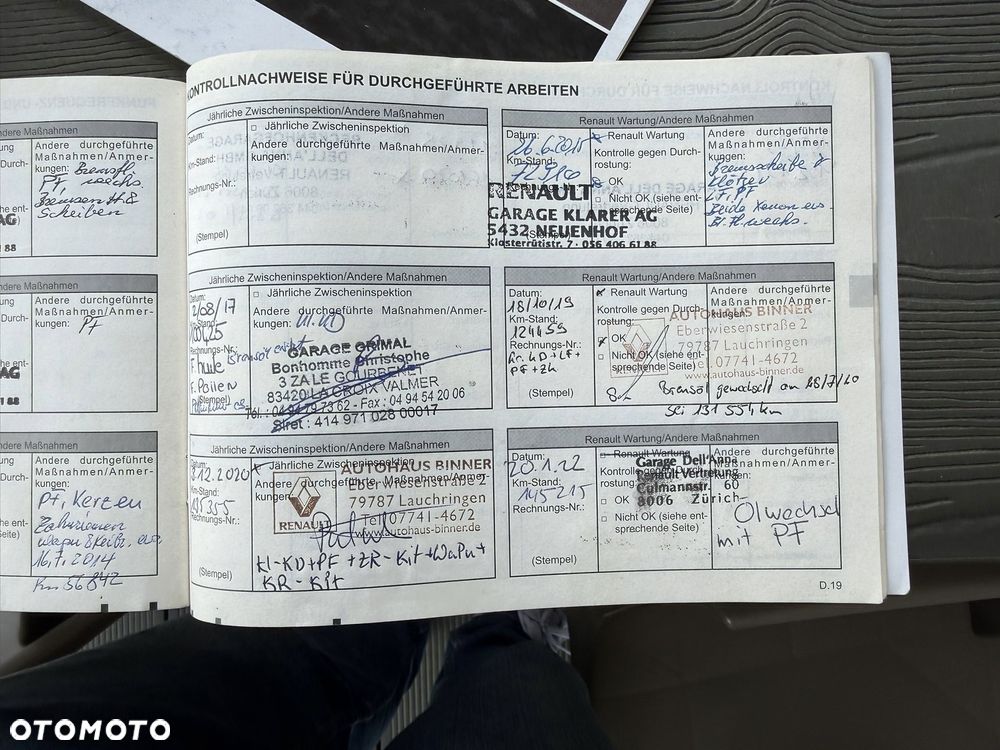 ndere Maßnahmen
Andere durchgeführte
Maßnahmen/Anmer-
kungen: Bremsfl.
PF, wechs.
Bremsen H&
Scheiben
88
ndere Maßnahmen
Andere durchgeführte
Maßnahmen/Anmer-
kungen: PF
88
ndere Maßnahmen
Andere durchgeführte
Maßnahmen/Anmer-
kungen:
PF, Kerzen
Zahnriemen
16.7.2014
Km 56842
KONTROLLNACHWEISE FÜR DURCHGEFÜHRTE ARBEITEN
Jährliche Zwischeninspektion/Andere Maßnahmen
Datum:
Km-Stand:
Rechnungs-Nr.:
(Stempel)
Jährliche Zwischeninspektion
Andere durchgeführte Maßnahmen/Anmer-
kungen:
Renault Wartung/Andere Maßnahmen
Datum:
26.6.2015
Km-Stand:
72900
Renault Wartung
Kontrolle gegen Durch-
rostung:
OK
Nicht OK (siehe ent-
sprechende Seite)
Andere durchgeführte
Maßnahmen/Anmer-
kungen:
Bremsscheibe &
Klötze
LF, PF
Beide Xenon
Br. Fl. wechs.
RENAULT
GARAGE KLARER AG
5432 NEUENHOF
Klosterrütistr. 7 · 056 406 61 88
Jährliche Zwischeninspektion/Andere Maßnahmen
Datum:
2/08/17
Km-Stand:
Rechnungs-Nr.:
F. huile
F. Pollen
Jährliche Zwischeninspektion
Andere durchgeführte Maßnahmen/Anmer-
kungen:
GARAGE GRIMAL
Bonhomme Christophe
3 ZA LE GOURBENET
83420 LA CROIX VALMER
Tél. : 04 94 79 73 62 - Fax : 04 94 54 20 06
Siret : 414 971 028 00017
Renault Wartung/Andere Maßnahmen
Datum:
18/10/19
Km-Stand:
124459
gr. KD+LF+
PF+ZK
(Stempel)
Renault Wartung
Kontrolle gegen Durch-
rostung:
OK
Nicht OK (siehe ent-
sprechende Seite)
Andere durchgeführte
Maßnahmen/Anmer-
kungen:
AUTOHAUS BINNER
Eberwiesenstraße 2
79787 Lauchringen
Tel. 07741-4672
www.autohaus-binner.de
Bremsfl gewechselt am 28/7/20
bei 131 554 km
Jährliche Zwischeninspektion/Andere Maßnahmen
Datum:
3.12.2020
Km-Stand:
135355
Rechnungs-Nr.:
(Stempel)
Jährliche Zwischeninspektion
Andere durchgeführte Maßnahmen/Anmer-
kungen:
AUTOHAUS BINNER
Eberwiesenstraße 2
79787 Lauchringen
Tel. 07741-4672
www.autohaus-binner.de
RENAULT
Kl-KD+PF+ZR-Kit+WaPu+
KR-Kit
Renault Wartung/Andere Maßnahmen
Datum:
20.1.22
Km-Stand:
145215
Rechnungs-Nr.:
(Stempel)
Renault Wartung
Kontrolle gegen Durch-
OK
Nicht OK (siehe ent-
sprechende Seite)
Andere durchgeführte
Maßnahmen/Anmer-
kungen:
Garage Dell'Anna
Renault Vertretung
Culmannstr. 60
8006 Zürich
Ölwechsel
mit PF
D.19
OTOMOTO